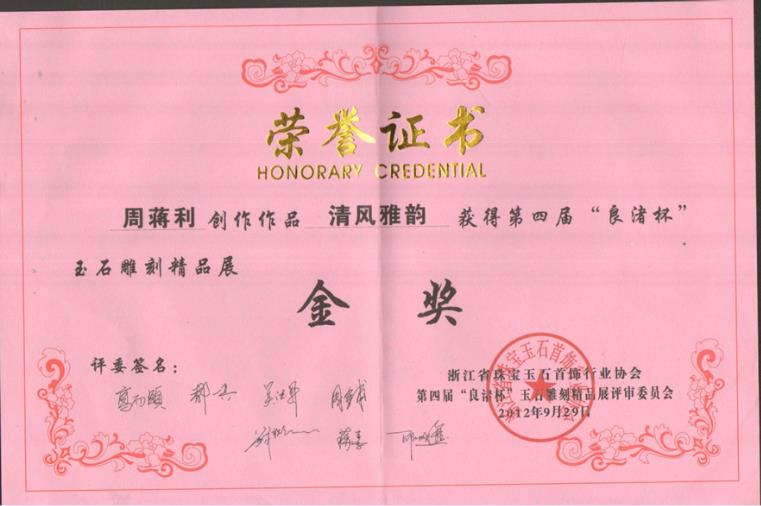 荣誉证书
HONORARY CREDENTIAL
周蒋利创作作品 清风雅韵 获得第四届“良渚杯”
玉石雕刻精品展
金奖
评委签名：
浙江省珠宝玉石首饰行业协会
第四届“良渚杯”玉石雕刻精品展评审委员会
2012年9月29日